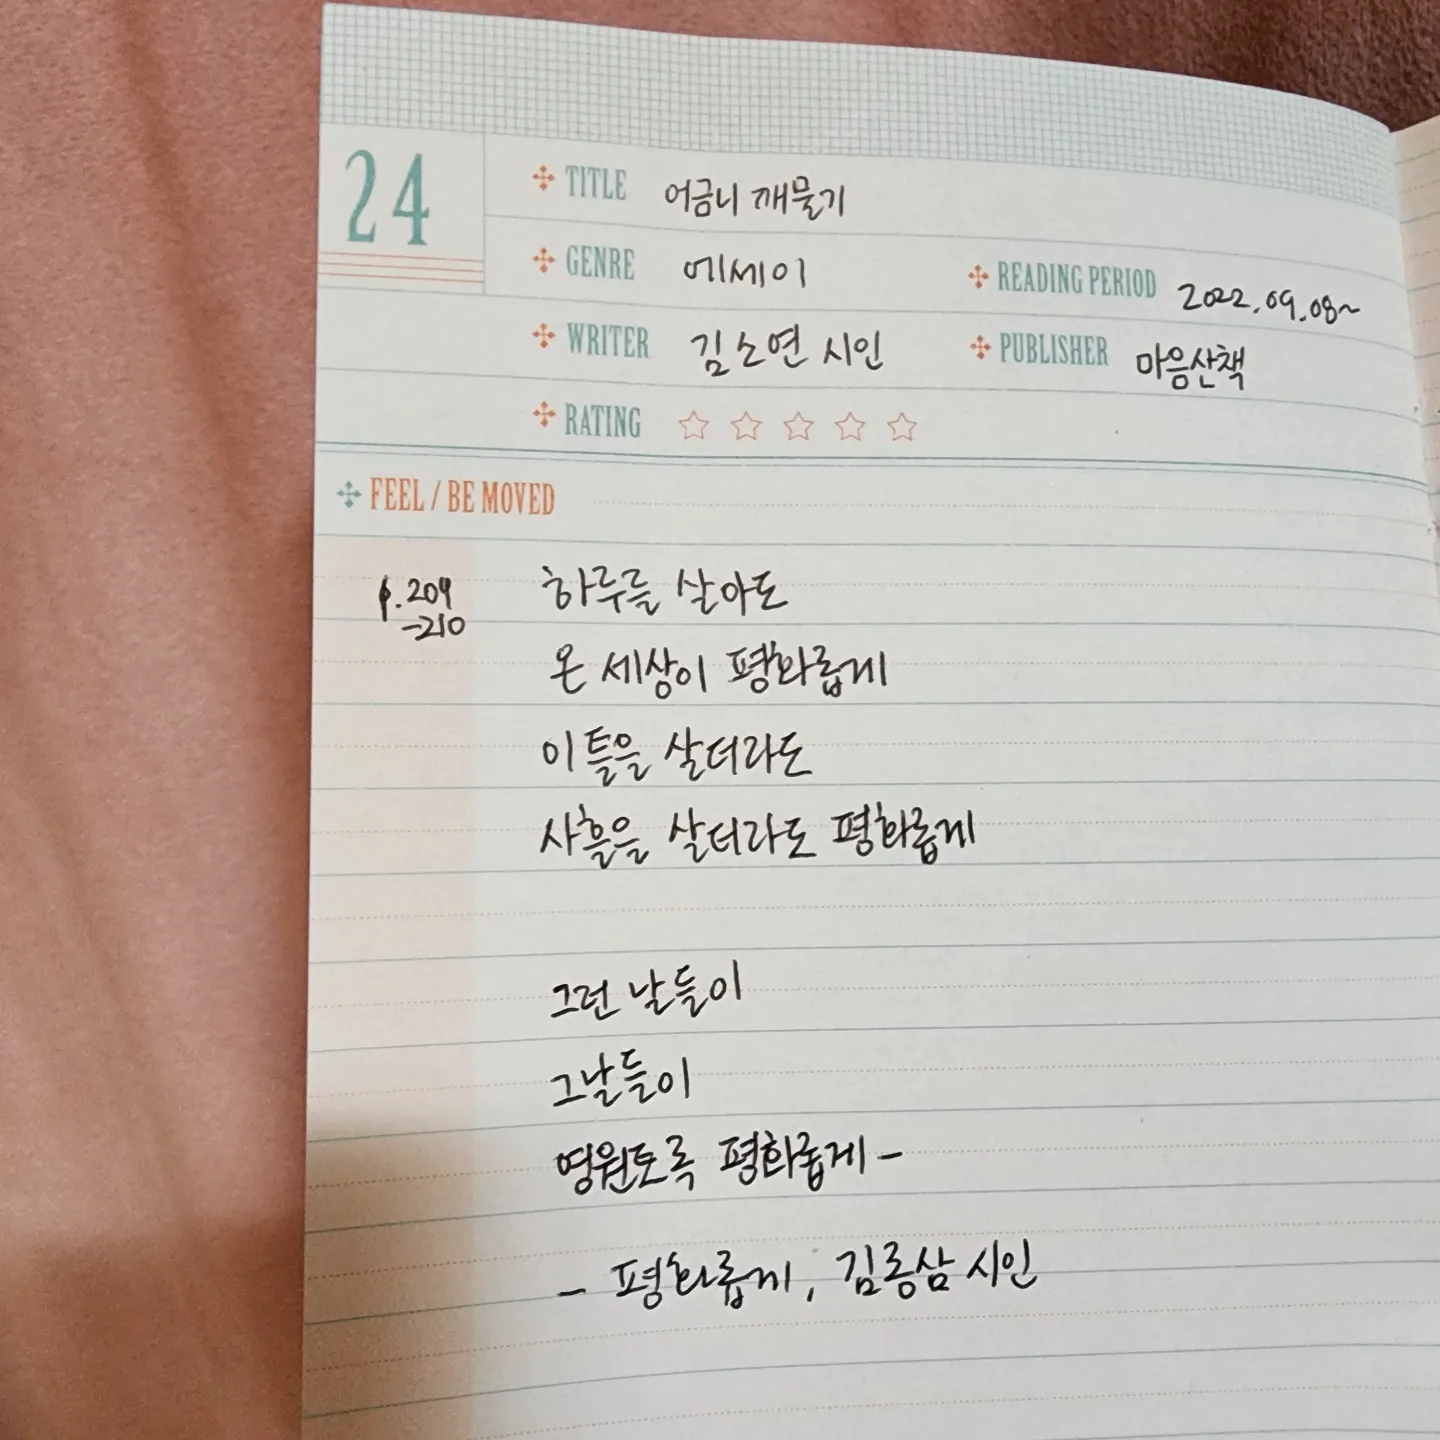 24
TITLE 어금니 깨물기
GENRE 에세이 READING PERIOD 2022.09.08~
WRITER 김소연 시인 PUBLISHER 마음산책
RATING
FEEL / BE MOVED
p.209 하루를 살아도
-210
온 세상이 평화롭게
이틀을 살더라도
사흘을 살더라도 평화롭게
그런 날들이
그날들이
영원토록 평화롭게-
- 평화롭게, 김종삼 시인